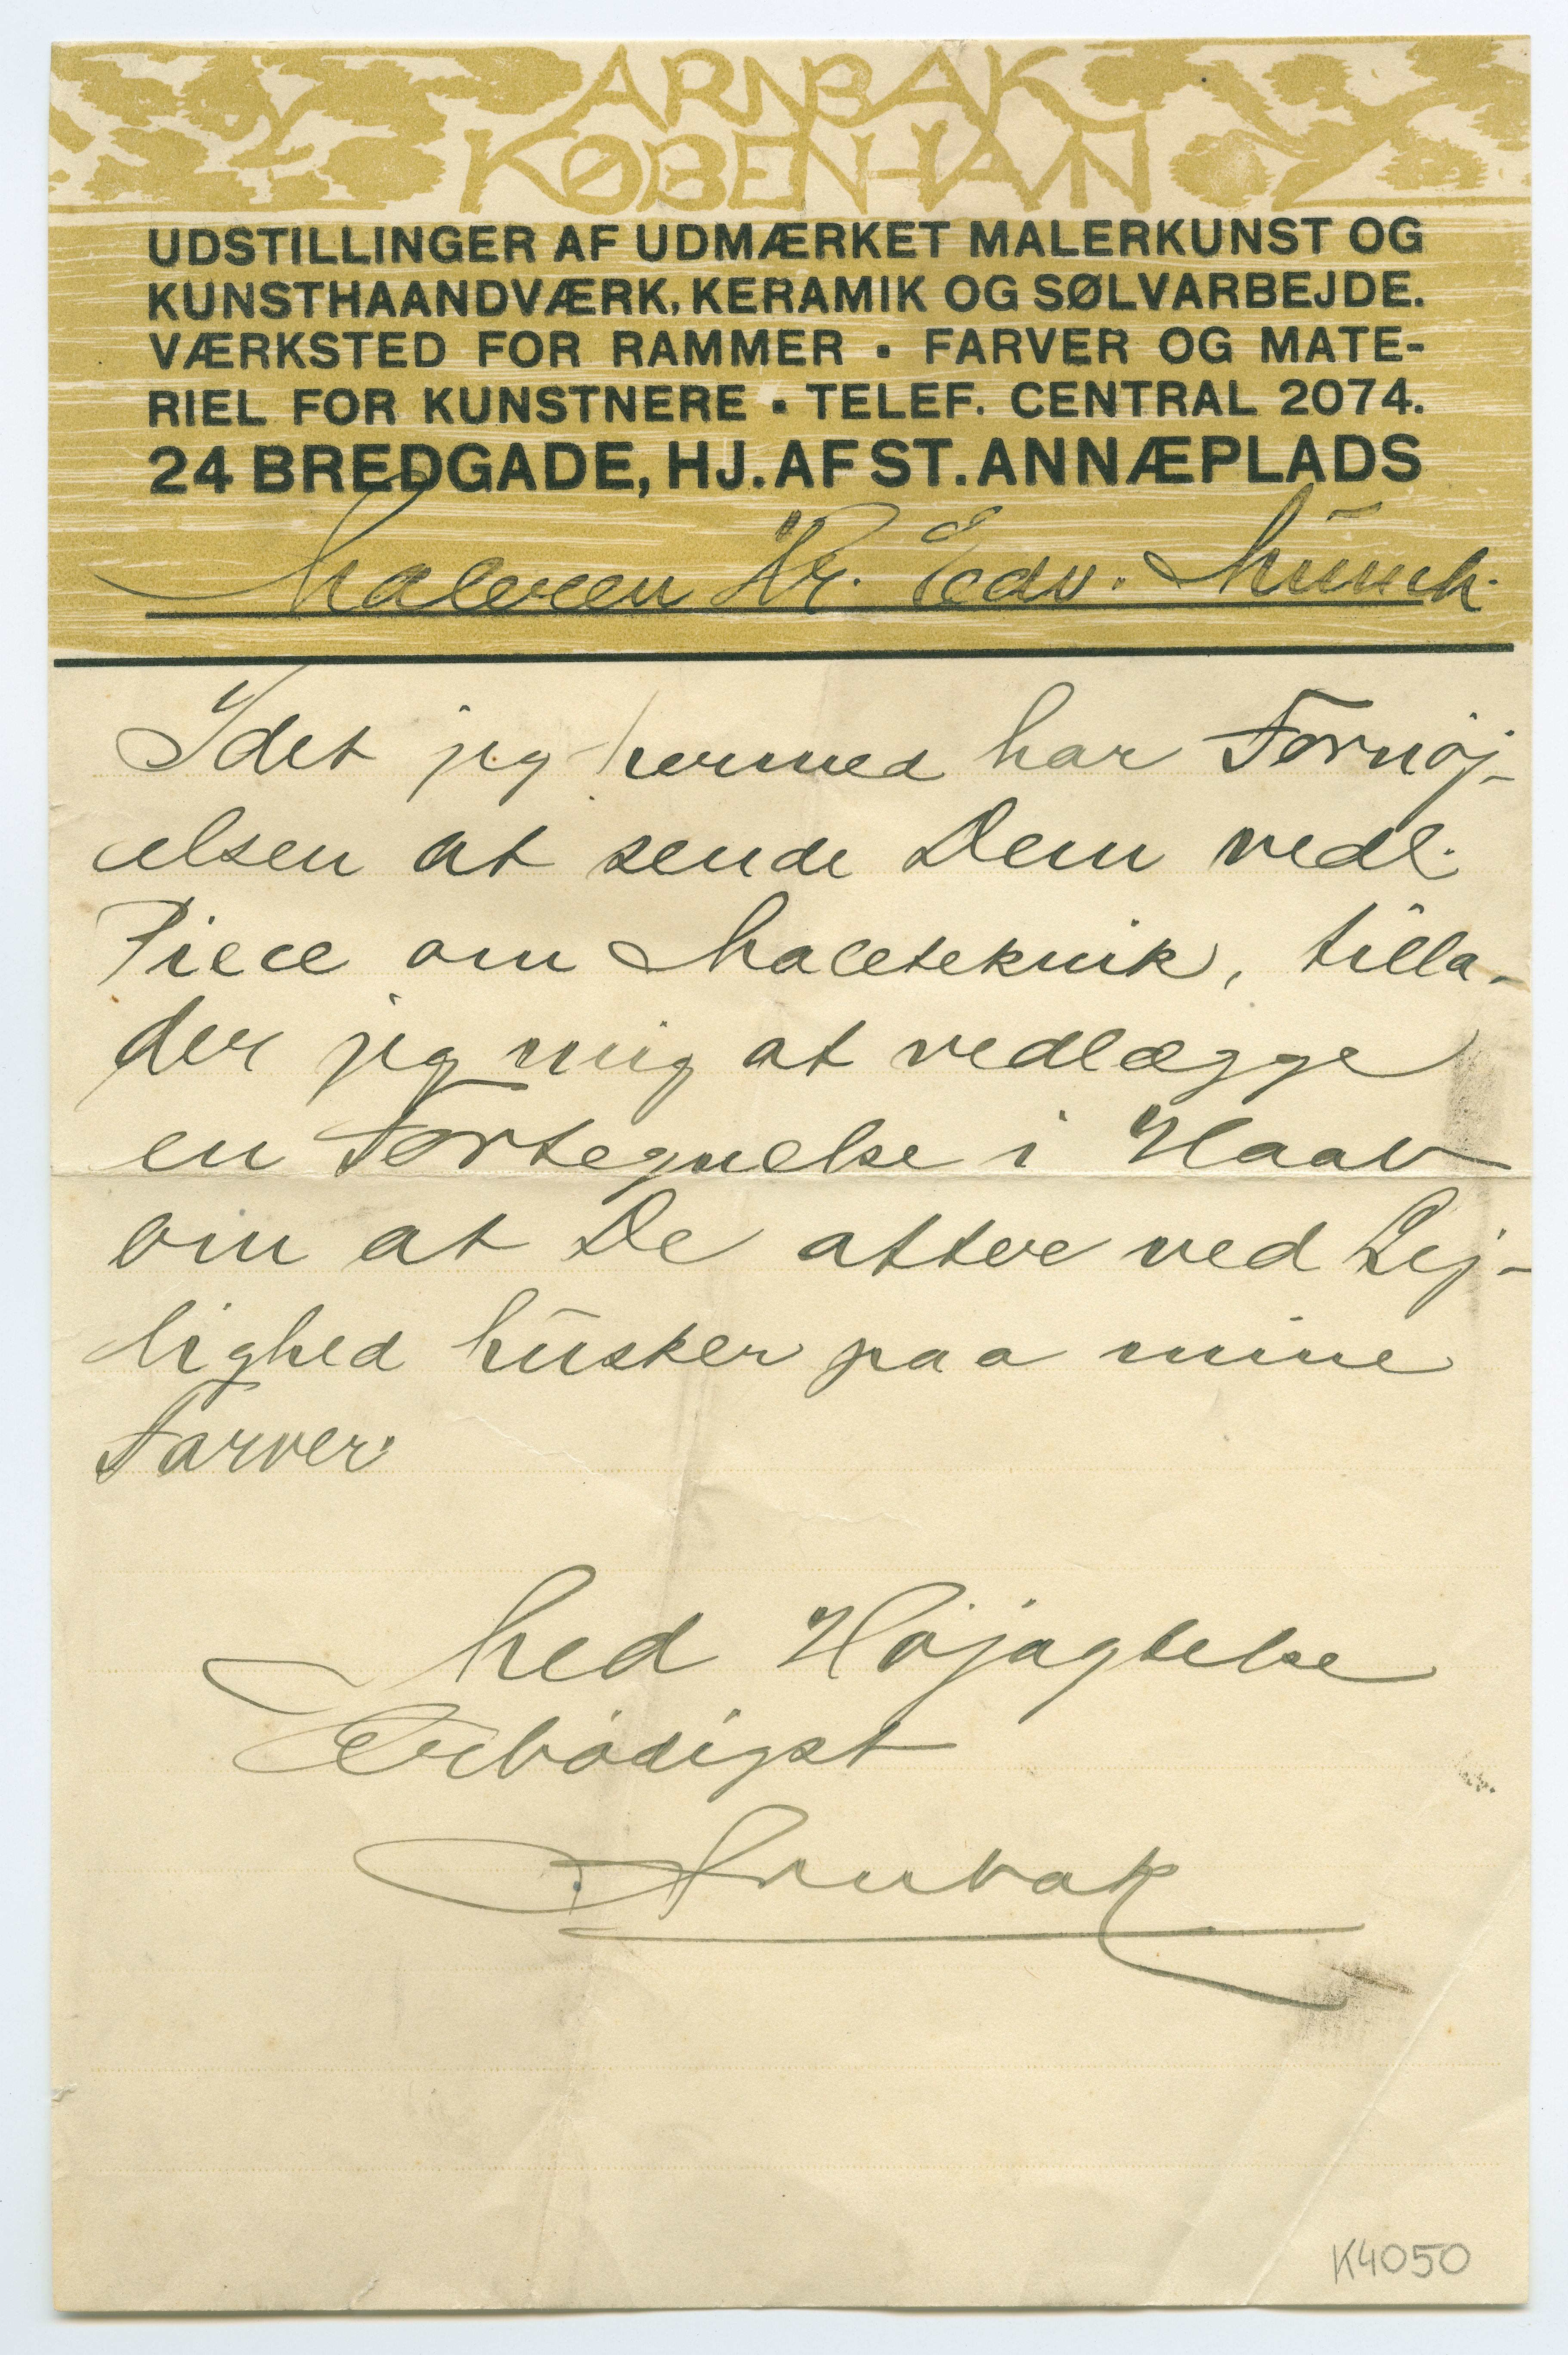 ARNBAK
KØBENHAVN
UDSTILLINGER AF UDMÆRKET MALERKUNST OG
KUNSTHAANDVÆRK, KERAMIK OG SØLVARBEJDE.
VÆRKSTED FOR RAMMER ▪ FARVER OG MATE-
RIEL FOR KUNSTNERE ▪ TELEF. CENTRAL 2074.
24 BREDGADE, HJ. AF ST. ANNÆPLADS
Maleren Hr. Edv. Munch.
Idet jeg hermed har Fornøj-
elsen at sende Dem vedl.
Piece om Maleteknik, tilla-
der jeg mig at vedlægge
en Fortegnelse i Haab
om at De atter ved Lej-
lighed husker paa mine
Farver.
Med Højagtelse
Ærbødigst
Arnbak
K4050